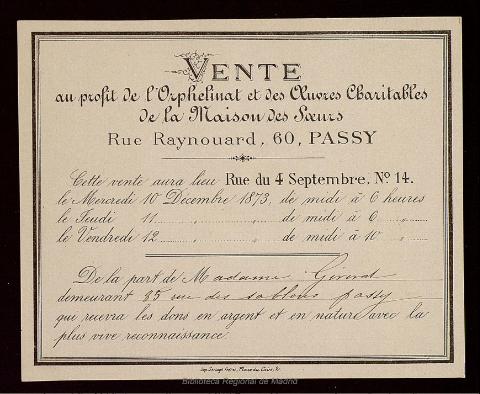 VENTE
au profit de l'Orphelinat et des Œuvres Charitables
de la Maison des Sœurs
Rue Raynouard, 60, PASSY
Cette vente aura lieu Rue du 4 Septembre. No 14.
le Mercredi 10 Décembre 1873, de midi à 6 heures
le Jeudi 11 „ „ de midi à 6 „
le Vendredi 12 „ „ de midi à 10 „
De la part de Madame
demeurant 85 rue des sablons passy
qui recevra les dons en argent et en nature avec la
plus vive reconnaissance.
Biblioteca Regional de Madrid